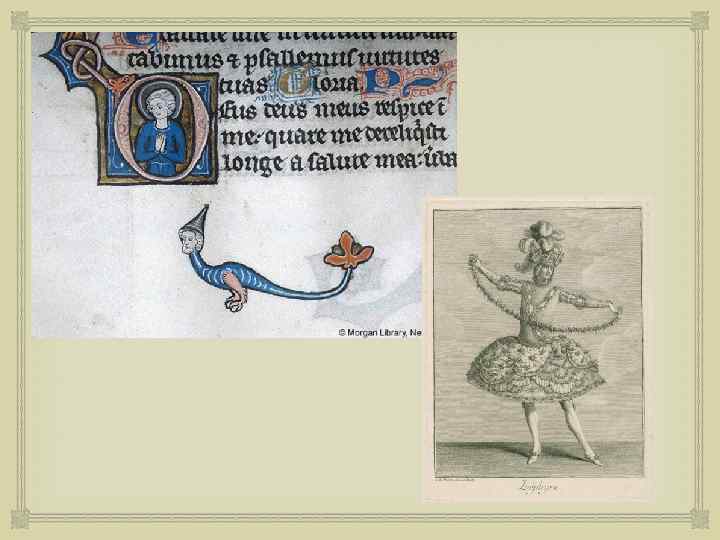 rabimus & psallemus uirtutes
tuas Gloria P
Deus deus meus respice ī
me: quare me dereliq̄sti
longe a salute mea: u͞ba
© Morgan Library, Ne
Zephyre